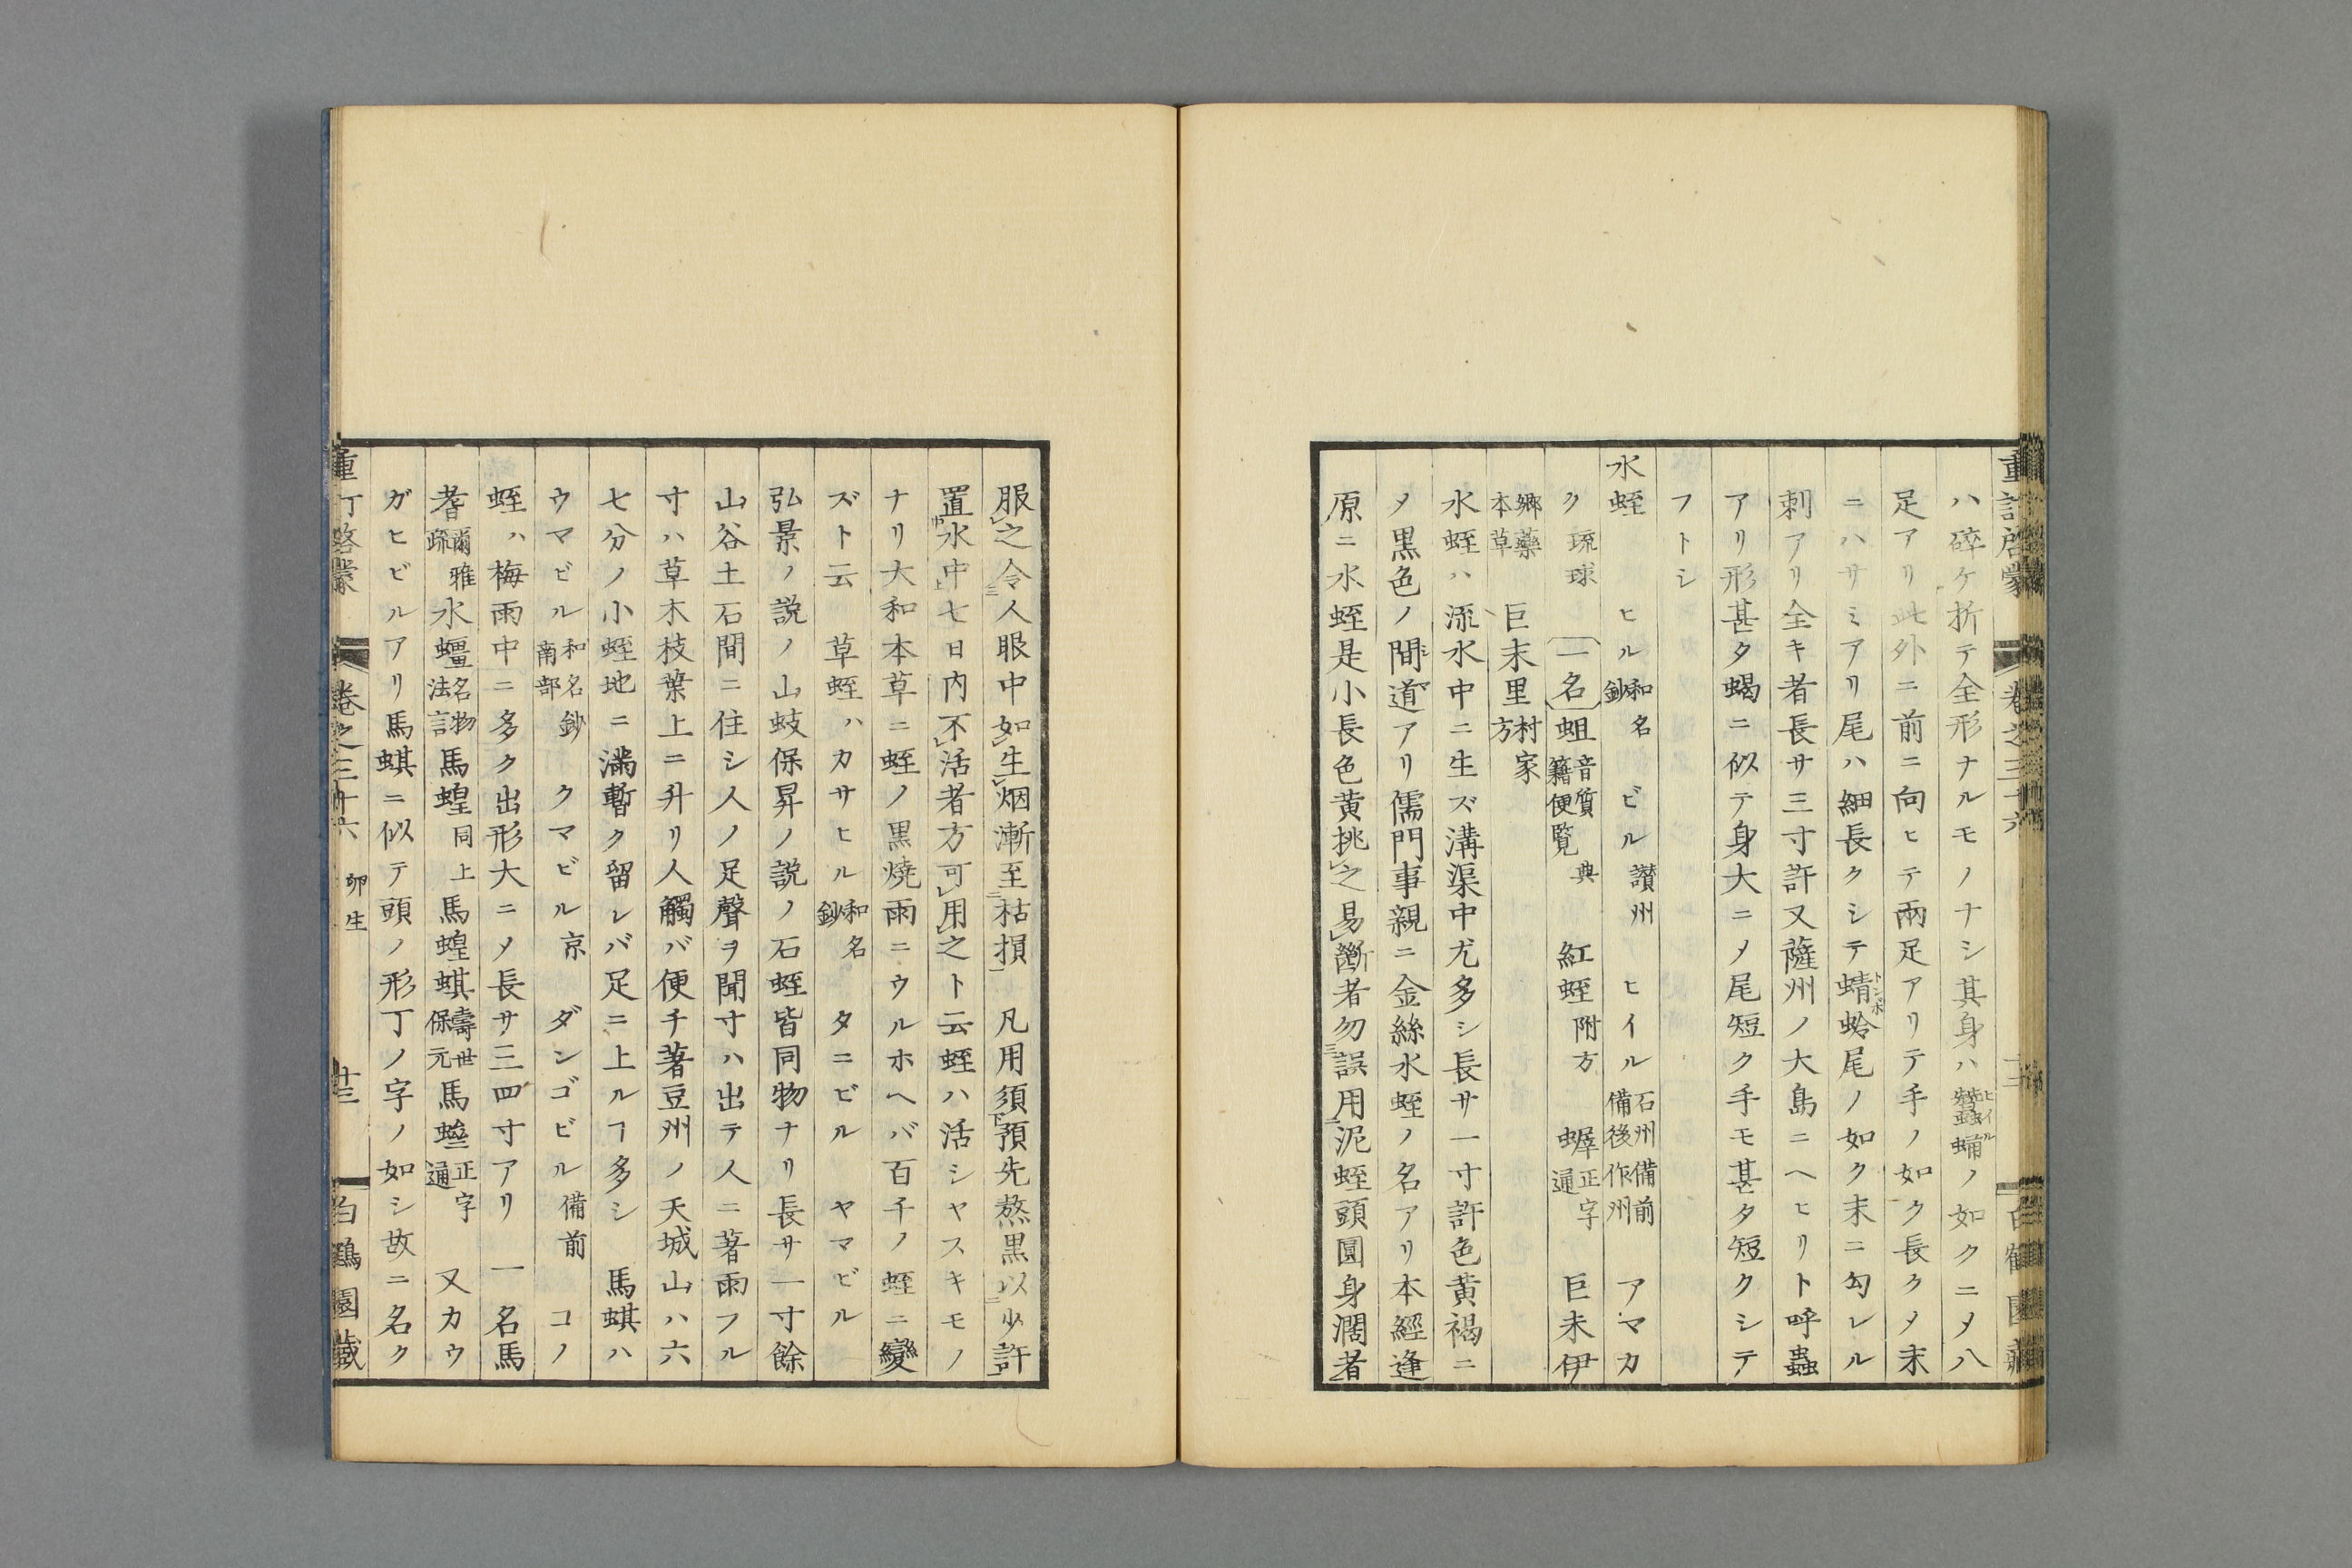 重訂啓蒙 卷之三十六 十二 白鶴園藏
ハ碎ケ折テ全形ナルモノナシ其身ハ蠶蛹ヒイルノ如クニメ八
足アリ此外ニ前ニ向ヒテ兩足アリテ手ノ如ク長クメ末
ニハサミアリ尾ハ細長クシテ蜻蛉トンボ尾ノ如ク末ニ勾レル
刺アリ全キ者長サ三寸許又薩州ノ大島ニヘヒリト呼蟲
アリ形甚タ蝎ニ似テ身大ニメ尾短ク手モ甚タ短クシテ
フトシ
水蛭 ヒル和名鈔 ビル讃州 ヒイル石州備前備後作州 アマカ
ク琉球 一名蛆音質典籍便覧 紅蛭附方 蠴正字通 巨末伊
郷藥本草 巨末里村家方
水蛭ハ流水中ニ生ズ溝渠中尤多シ長サ一寸許色黄褐ニ
メ黒色ノ間道アリ儒門事親ニ金絲水蛭ノ名アリ本經逢
原ニ水蛭是小長色黄挑之易斷者勿誤用泥蛭頭圓身濶者
服之令人眼中如生烟漸至枯損 凡用須預先熬黒以少許
置水中七日内不活者方可用之ト云蛭ハ活シヤスキモノ
ナリ大和本草ニ蛭ノ黒燒雨ニウルホヘバ百千ノ蛭ニ變
ズト云 草蛭ハカサヒル和名鈔 タニビル ヤマビル
弘景ノ説ノ山蚑保昇ノ説ノ石蛭皆同物ナリ長サ一寸餘
山谷土石間ニ住シ人ノ足聲ヲ聞寸ハ出テ人ニ著雨フル
寸ハ草木枝葉上ニ升リ人觸バ便チ著豆州ノ天城山ハ六
七分ノ小蛭地ニ滿暫ク留レバ足ニ上ルヿ多シ 馬蜞ハ
ウマビル和名鈔南部 クマビル京 ダンゴビル備前 コノ
蛭ハ梅雨中ニ多ク出形大ニメ長サ三四寸アリ 一名馬
耆爾雅疏水蠝名物法言馬蝗同上馬蝗蜞壽世保元馬𧎼正字通 又カウ
ガヒビルアリ馬蜞ニ似テ頭ノ形丁ノ字ノ如シ故ニ名ク
重訂啓蒙 卷之三十六 卵生 十三 白鶴園藏